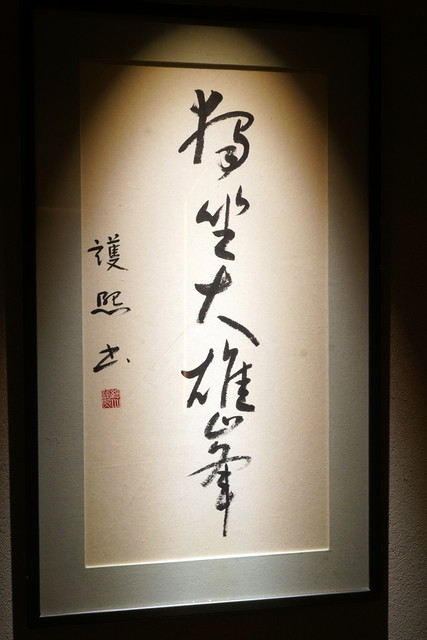 獨坐大雄峯
護熙书